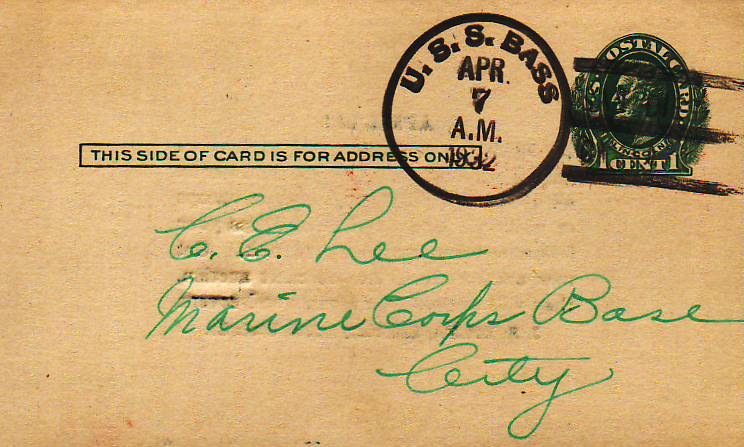 U.S.S. BASS
APR.
7
A.M.
1932
U.S. POSTAL CARD
CENT 1
THIS SIDE OF CARD IS FOR ADDRESS ON
C. E. Lee
Marine Corps Base
City